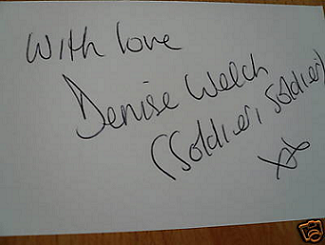 With love
Denise Welch
(Soldier, Soldier)
xx